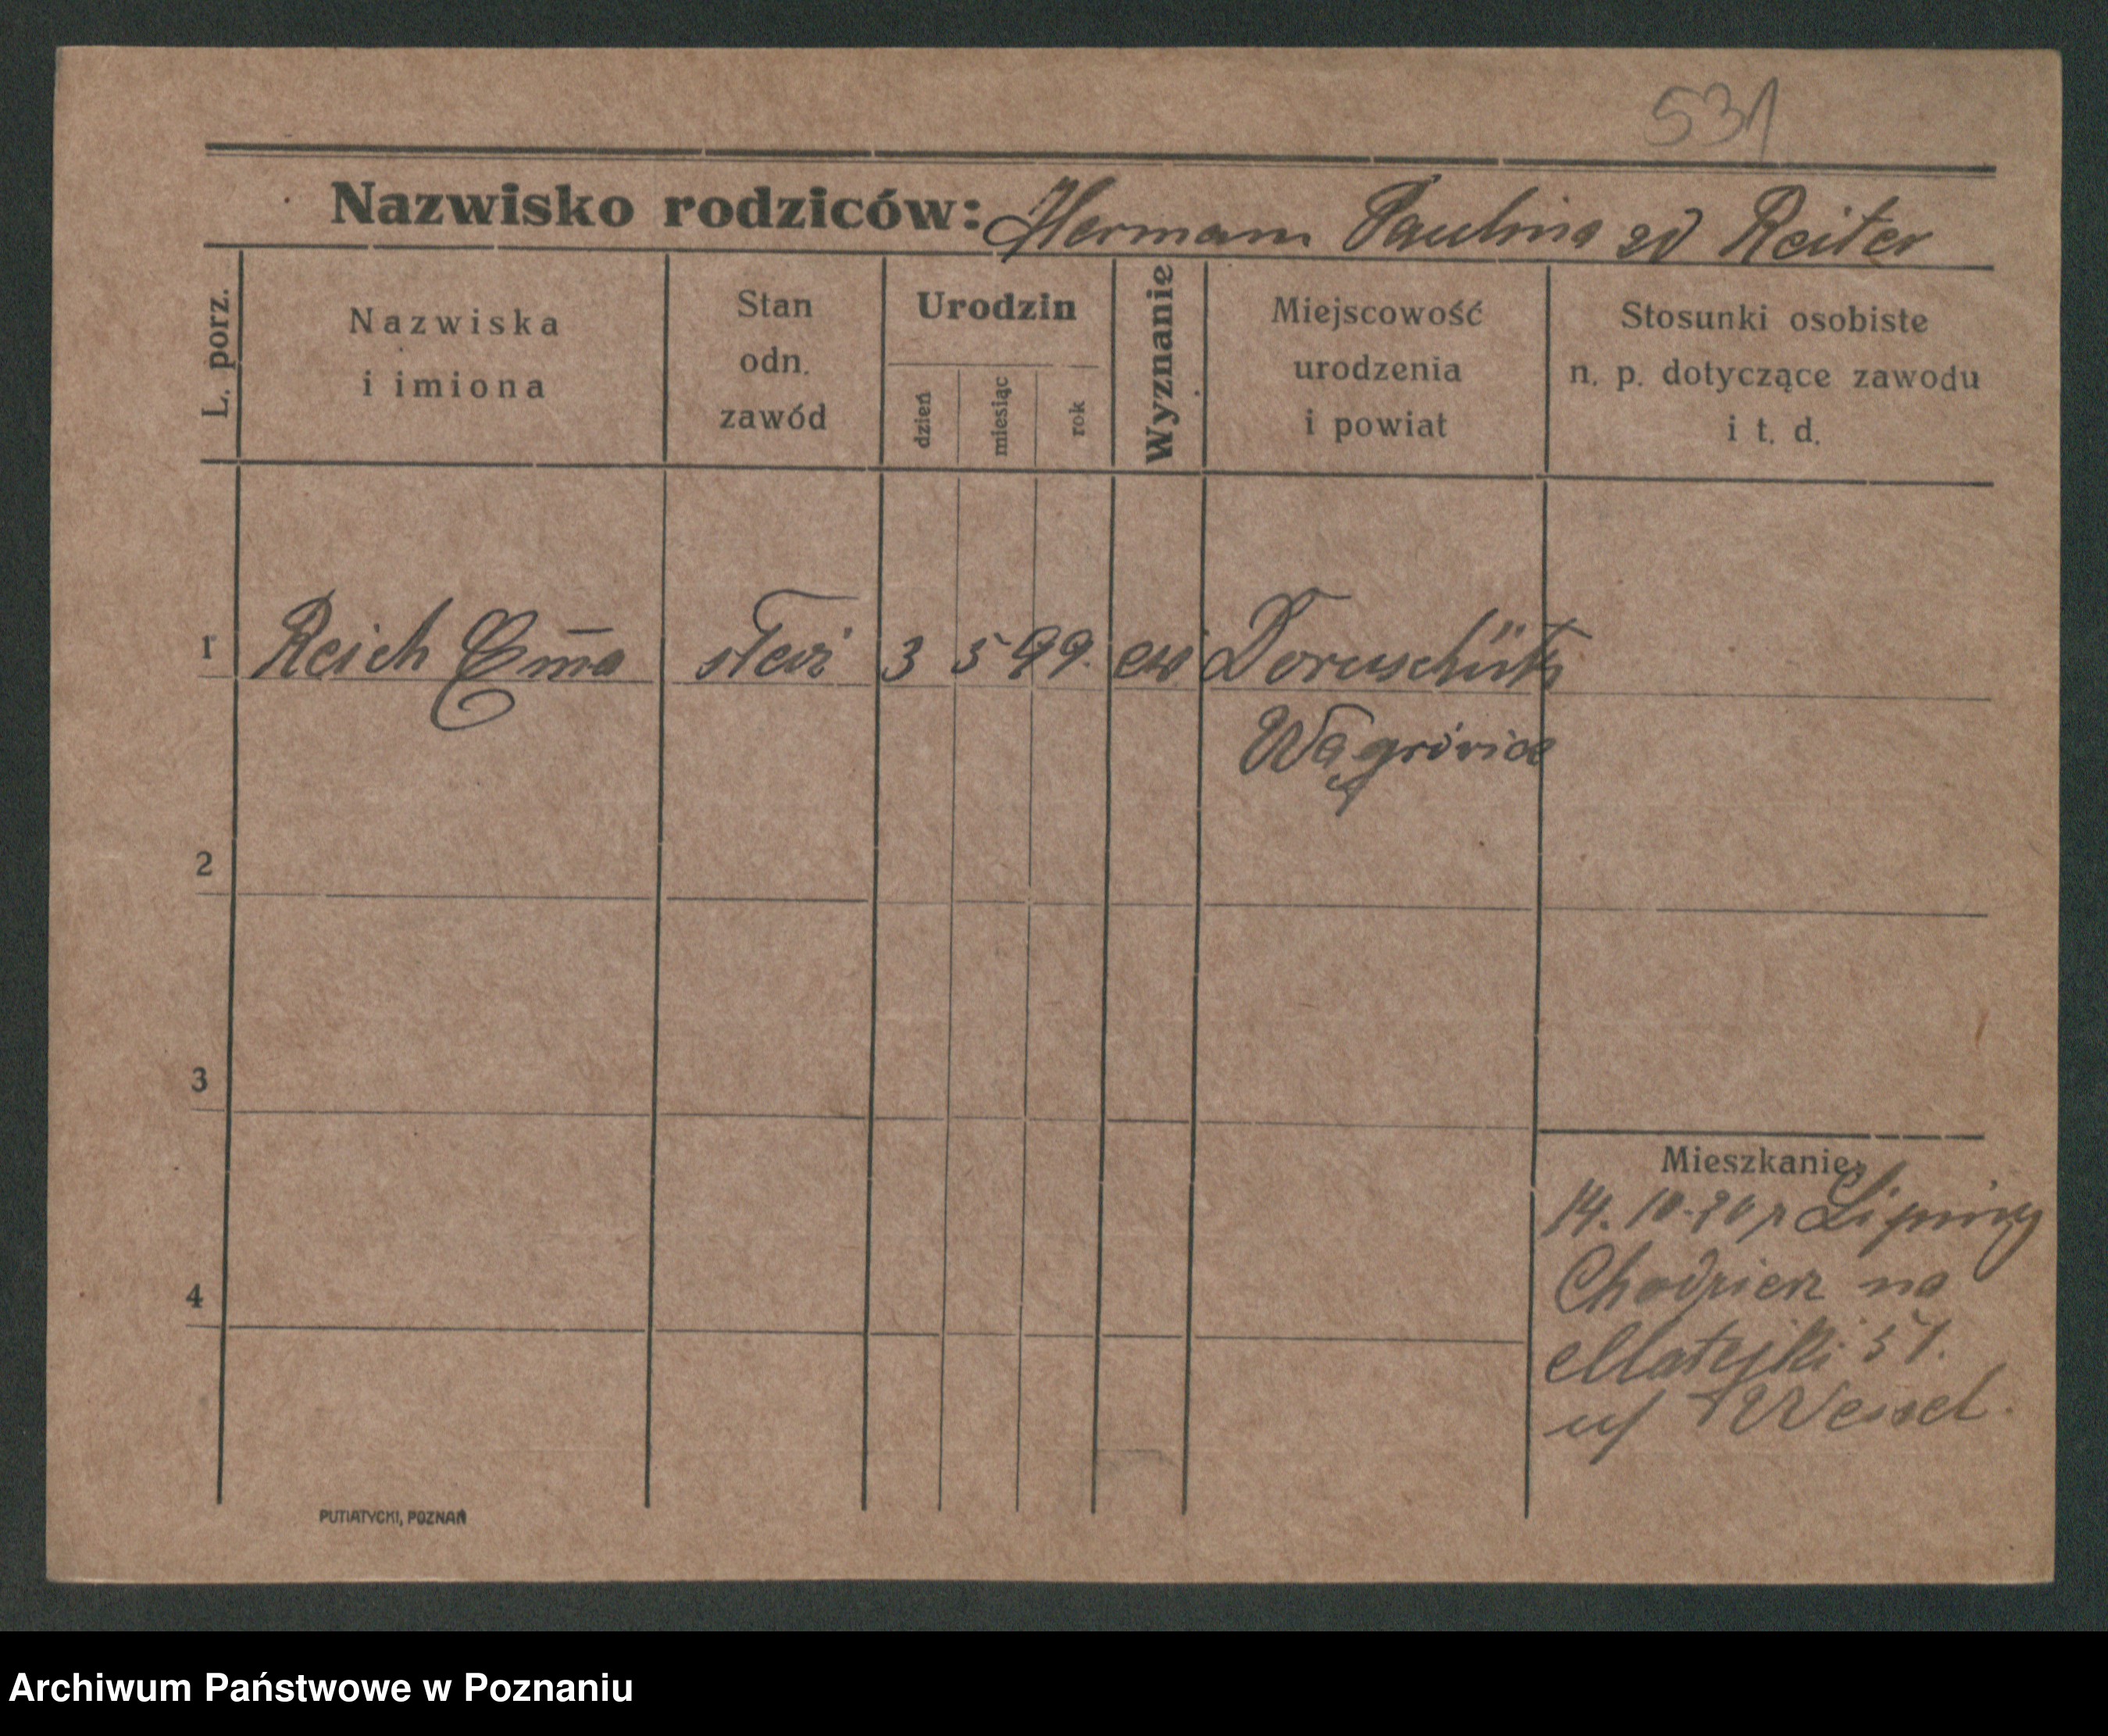 531
Nazwisko rodziców: Hermann Paulina zd Reiter
L. porz.
Nazwiska
i imiona
Stan
odn.
zawód
Urodzin
dzień
miesiąc
rok
Wyznanie
Miejscowość
urodzenia
i powiat
Stosunki osobiste
n. p. dotyczące zawodu
i t. d.
1 Reich Em̅a 3 5 99. ew Doruschütz
Wągrówiec
2
3
Mieszkanie:
14. 10. Lipiny
4 Chodzież na
Matejki 51.
u/ Wessel.
PUTIATYCKI, POZNAŃ
Archiwum Państwowe w Poznaniu